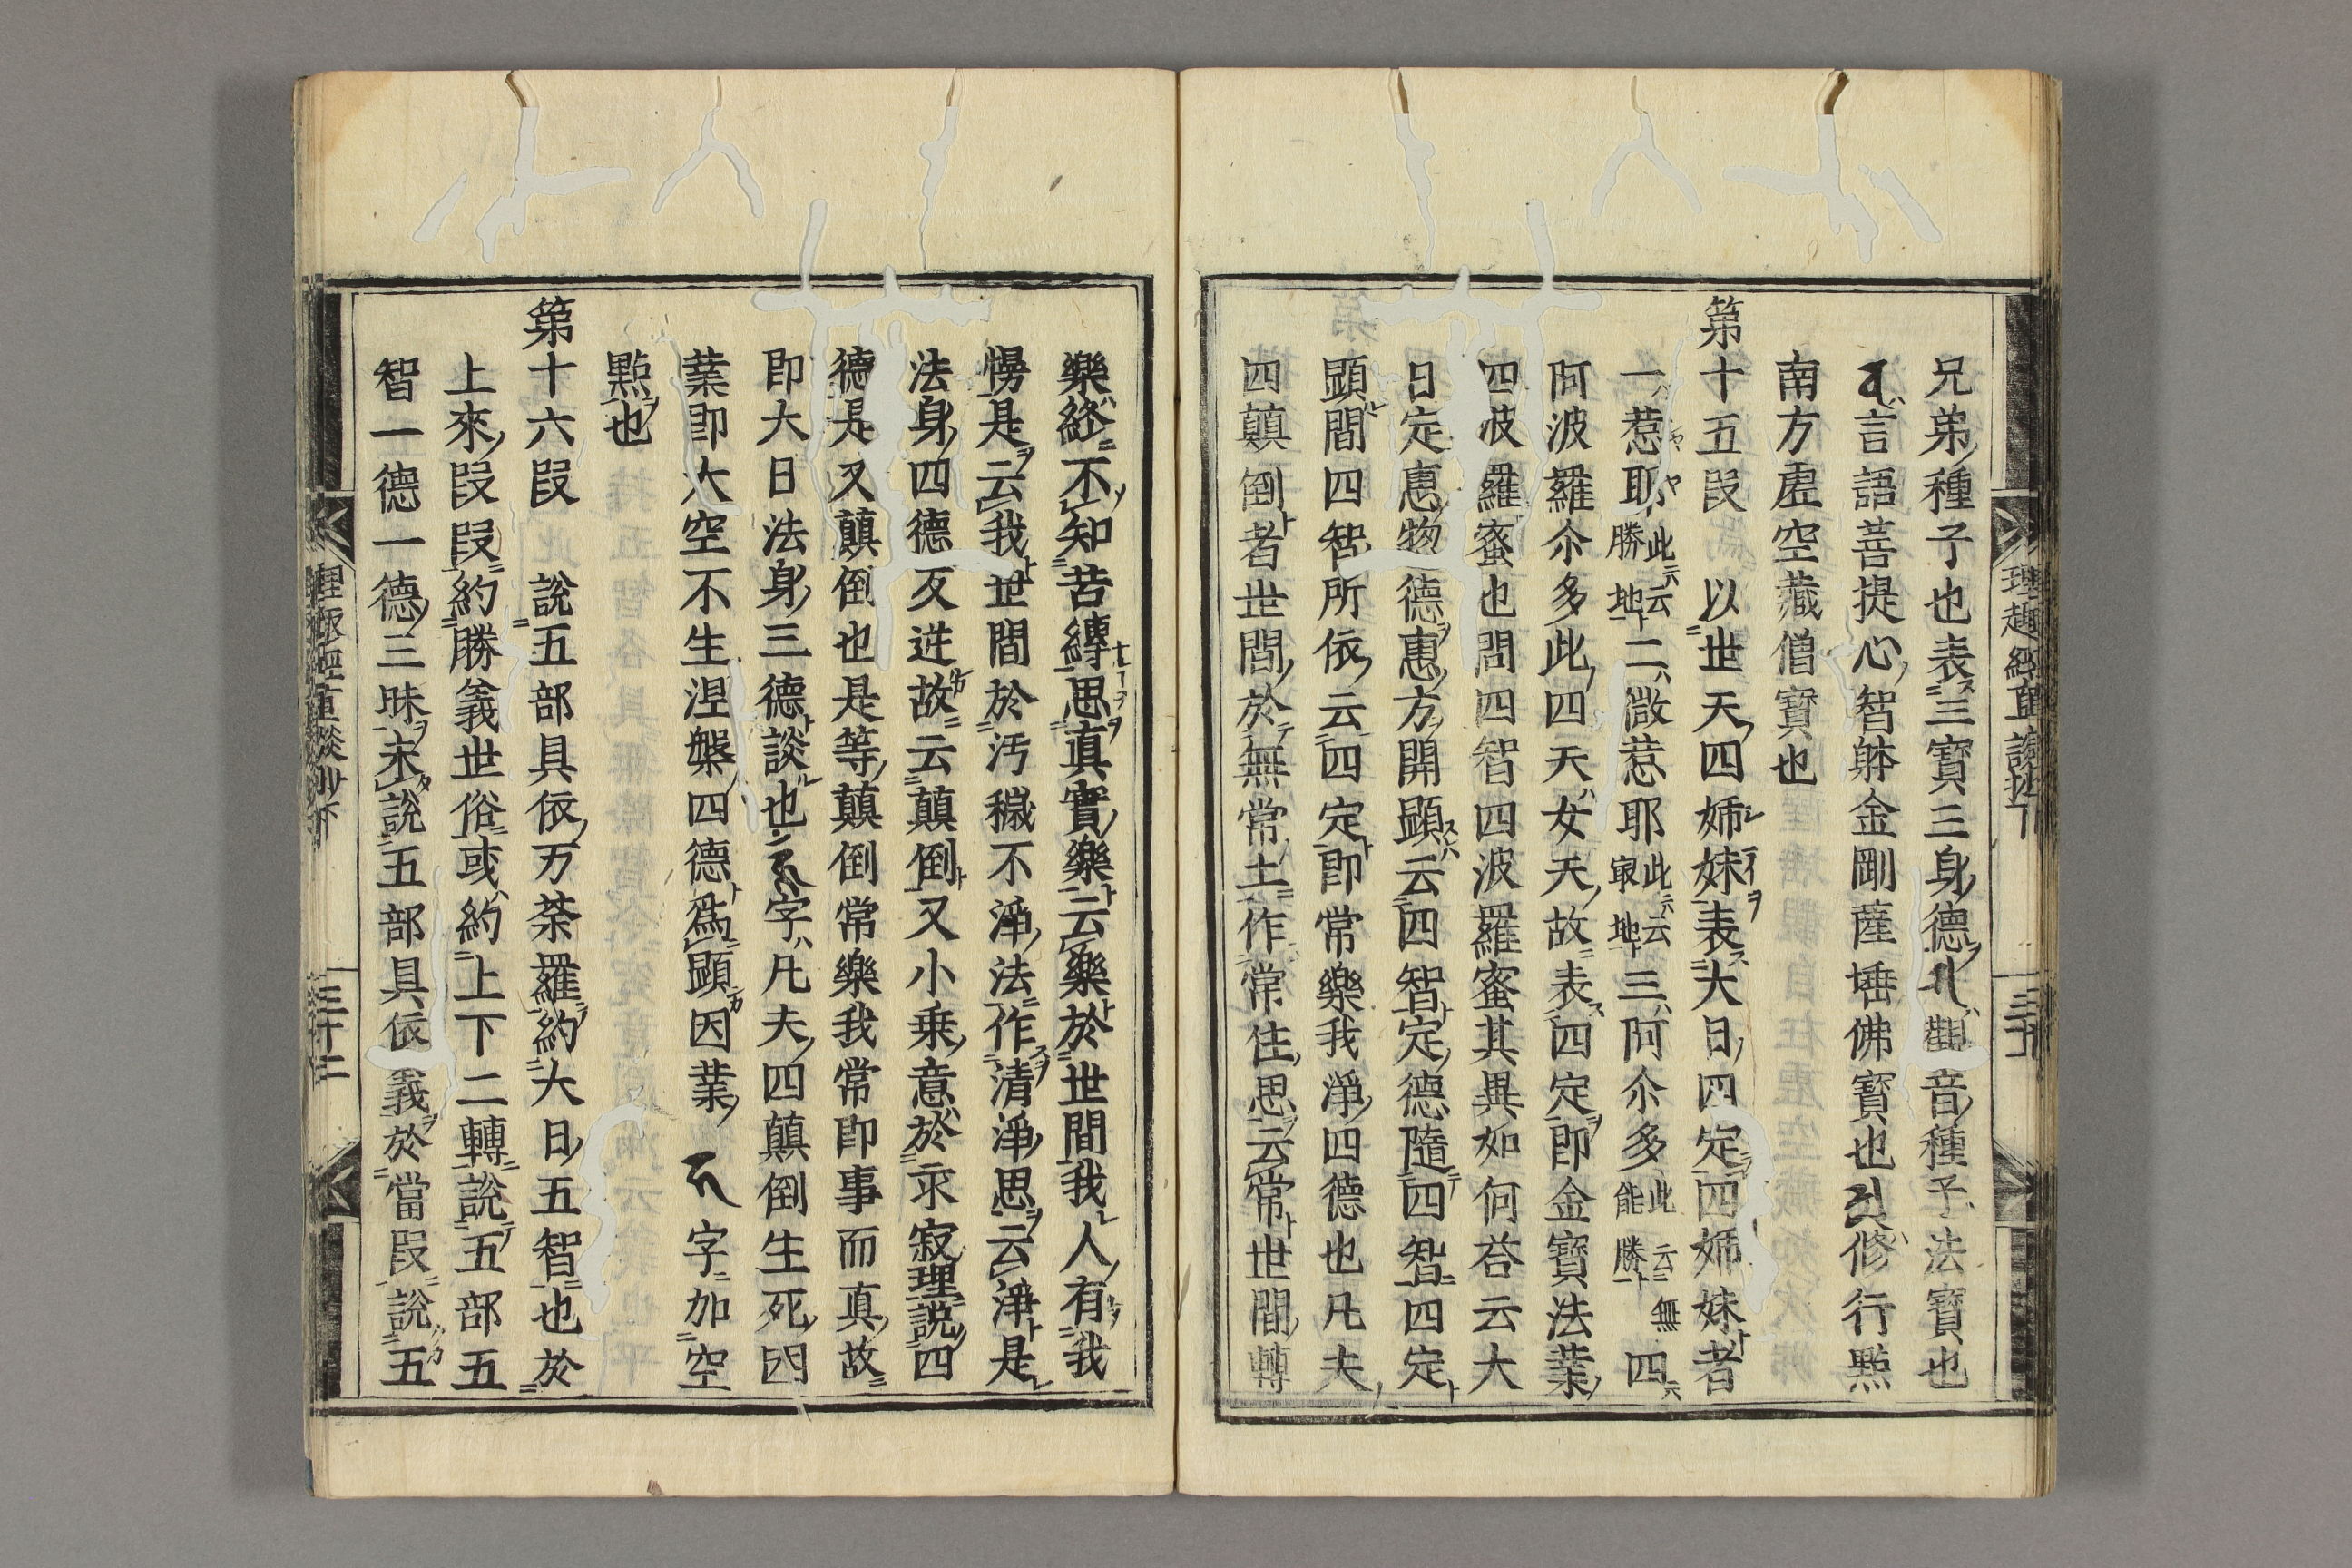 兄弟種子也表三寶三身德觀音種子法寶也
言語菩提心智躰金剛薩埵佛寶也修行㸃
南方虚空藏僧寶也
第十五叚 以世天四姉妹表大日四定四姉妹者
一惹耶此云勝地二微惹耶此云㝡地三阿尒多此云無能勝四
阿波羅尒多此四天女天故表四定即金寶法業
四波羅蜜也問四智四波羅蜜其異如何荅云大
日定惠物德惠方開顕云四智定德隨四智四定
顕間四智所依云四定即常樂我淨四德也凡夫
四顛倒者世間於無常土作常住思云常世間轉
樂終不知苦縛思真實樂云樂於世間我人有我
慢是云我世間於汚穢不淨法作清淨思云淨是
法身四德反迸故云顛倒又小乗意於求寂理説四
德是又顛倒也是等顛倒常樂我常即事而真故
即大日法身三德談也字凡夫四顛倒生死因
業即大空不生涅槃四德爲顕因業字加空
㸃也
第十六叚 説五部具依万荼羅約大日五智也於
上來叚叚約勝義世俗或約上下二轉説五部五
智一德一德三昧未説五部具依義於當叚説五
理趣經直談抄下
三十二